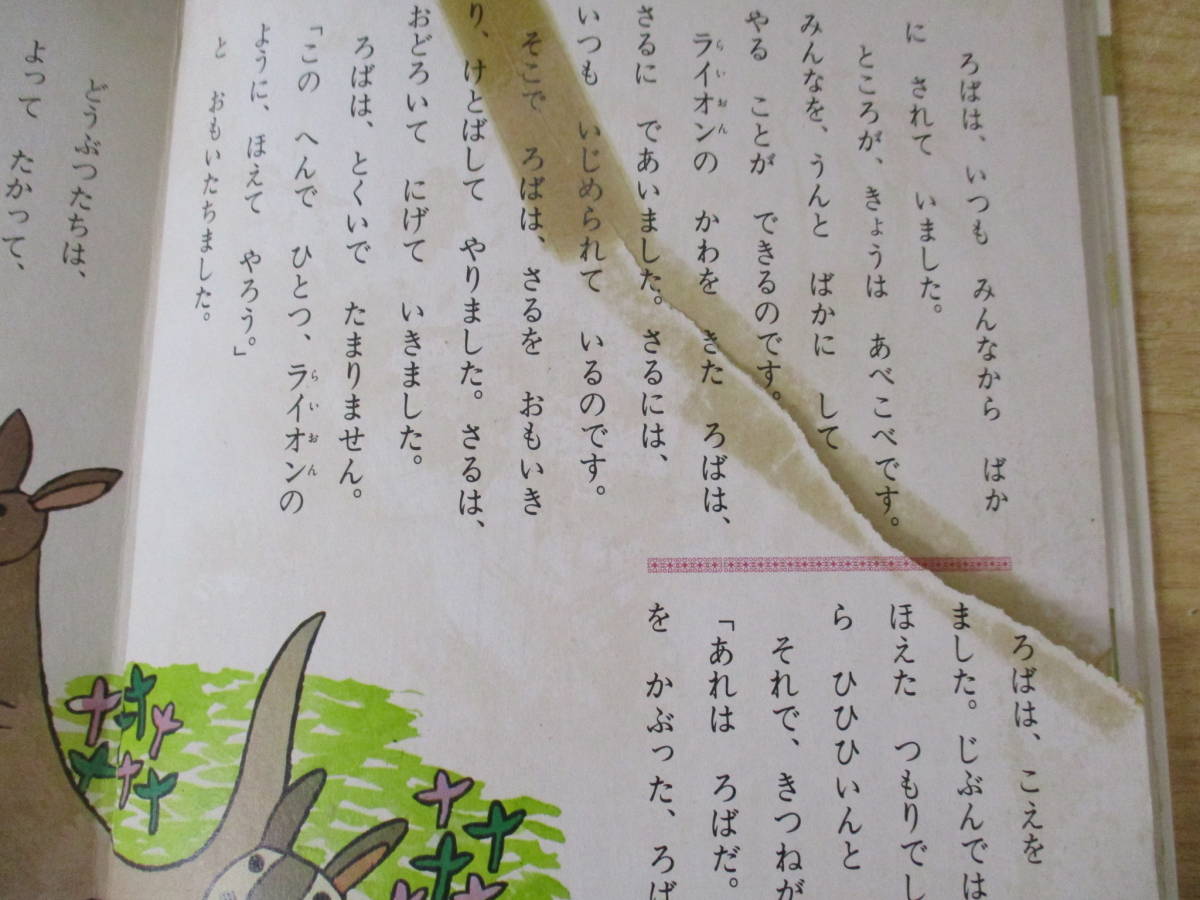 ろばは、いつも みんなから ばか
に されて いました。
ところが、きょうは あべこべです。
みんなを、うんと ばかに して
やる ことが できるのです。
ライオンの かわを きた ろばは、
さるに であいました。さるには、
いつも いじめられて いるのです。
そこで ろばは、さるを おもいき
り、けとばして やりました。さるは、
おどろいて にげて いきました。
ろばは、とくいで たまりません。
「この へんで ひとつ、ライオンの
ように、ほえて やろう。」
と おもいたちました。
ろばは、こえを
ました。じぶんでは
ほえた つもりでし
ら ひひひいんと
それで、きつねが
「あれは ろばだ。
を かぶった、ろば
どうぶつたちは、
よって たかって、